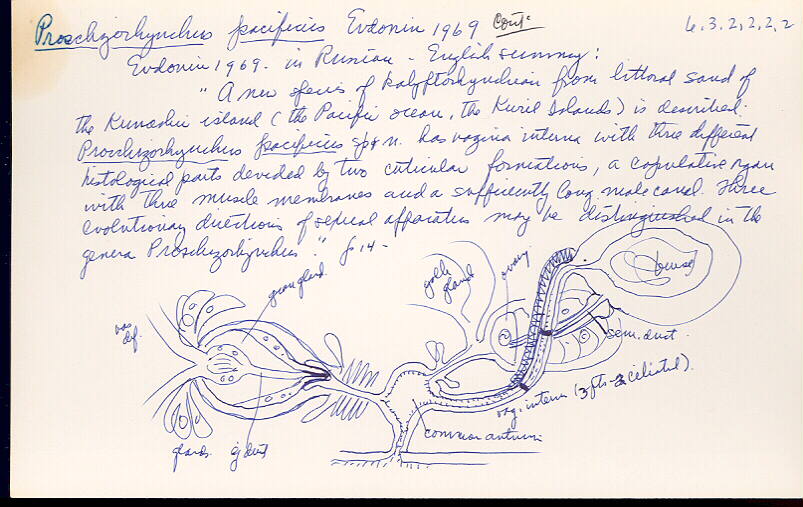 Proschizorhynchus pacificus Evdonin 1969 Cont. 6.3.2,2,2,2
Evdonin 1969 - in Russian - English summary:
"A new species of kalyptorhynchian from littoral sand of
the Kunashir island (the Pacific ocean, the Kuril Islands) is described.
Proschizorhynchus pacificus sp. n. has vagina interna with three different
histological parts devided by two cuticular formations, a copulative organ
with three muscle membranes and a sufficiently long male canal. Three
evolutionary directions of sexual apparatus may be distinguished in the
genera Proschizorhynchus." p 14 -
gran gland.
yolk
gland
ovary
bursa
vas
def.
sem. duct
vag. interna (3 pts - 2 ciliated).
common antrum
glands
ej duct